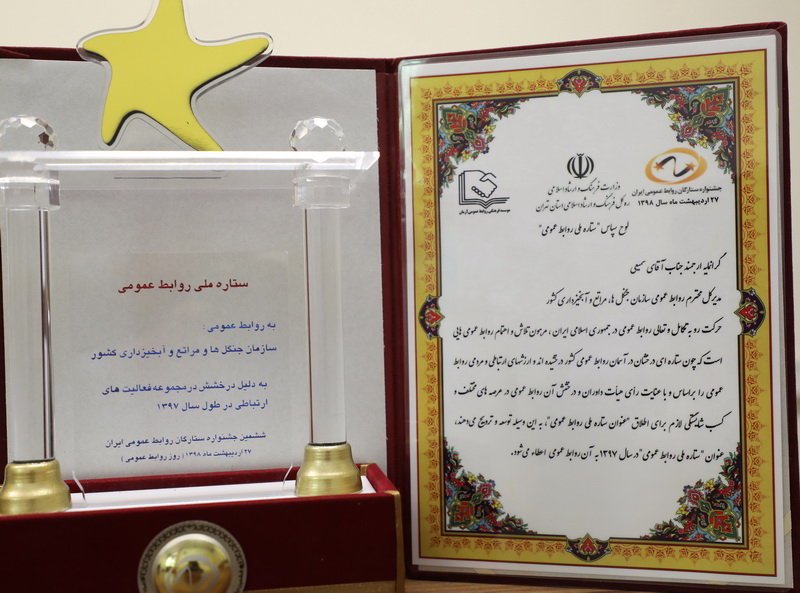 ستاره ملی روابط عمومی
به روابط عمومی :
سازمان جنگل ها و مراتع و آبخیزداری کشور
به دلیل درخشش در مجموعه فعالیت های
ارتباطی در طول سال ۱۳۹۷
ششمین جشنواره ستارگان روابط عمومی ایران
۲۷ اردیبهشت ماه ۱۳۹۸ ( روز روابط عمومی )
جشنواره ستارگان روابط عمومی ایران
۲۷ اردیبهشت ماه سال ۱۳۹۸
وزارت فرهنگ و ارشاد اسلامی
اداره کل فرهنگ و ارشاد اسلامی استان تهران
موسسه فرهنگی روابط عمومی آرمان
لوح سپاس "ستاره ملی روابط عمومی"
گرانمایه ارجمند جناب آقای
مدیرکل محترم روابط عمومی سازمان جنگل ها، مراتع و آبخیزداری کشور
حرکت رو به تکامل و تعالی روابط عمومی در جمهوری اسلامی ایران ، مرهون تلاش و اهتمام روابط عمومی هایی
است که چون ستاره ای درخشان در آسمان روابط عمومی کشور درخشیده اند و ارزشهای ارتباطی و مردمی روابط
عمومی را براساس و با عنایت رأی هیأت داوران و درخشش آن روابط عمومی در عرصه های مختلف و
کسب شایستگی لازم برای اطلاق "عنوان ستاره ملی روابط عمومی"، به این وسیله توسعه و ترویج می دهند،
عنوان "ستاره ملی روابط عمومی" در سال ۱۳۹۷ به آن روابط عمومی اعطاء می شود.